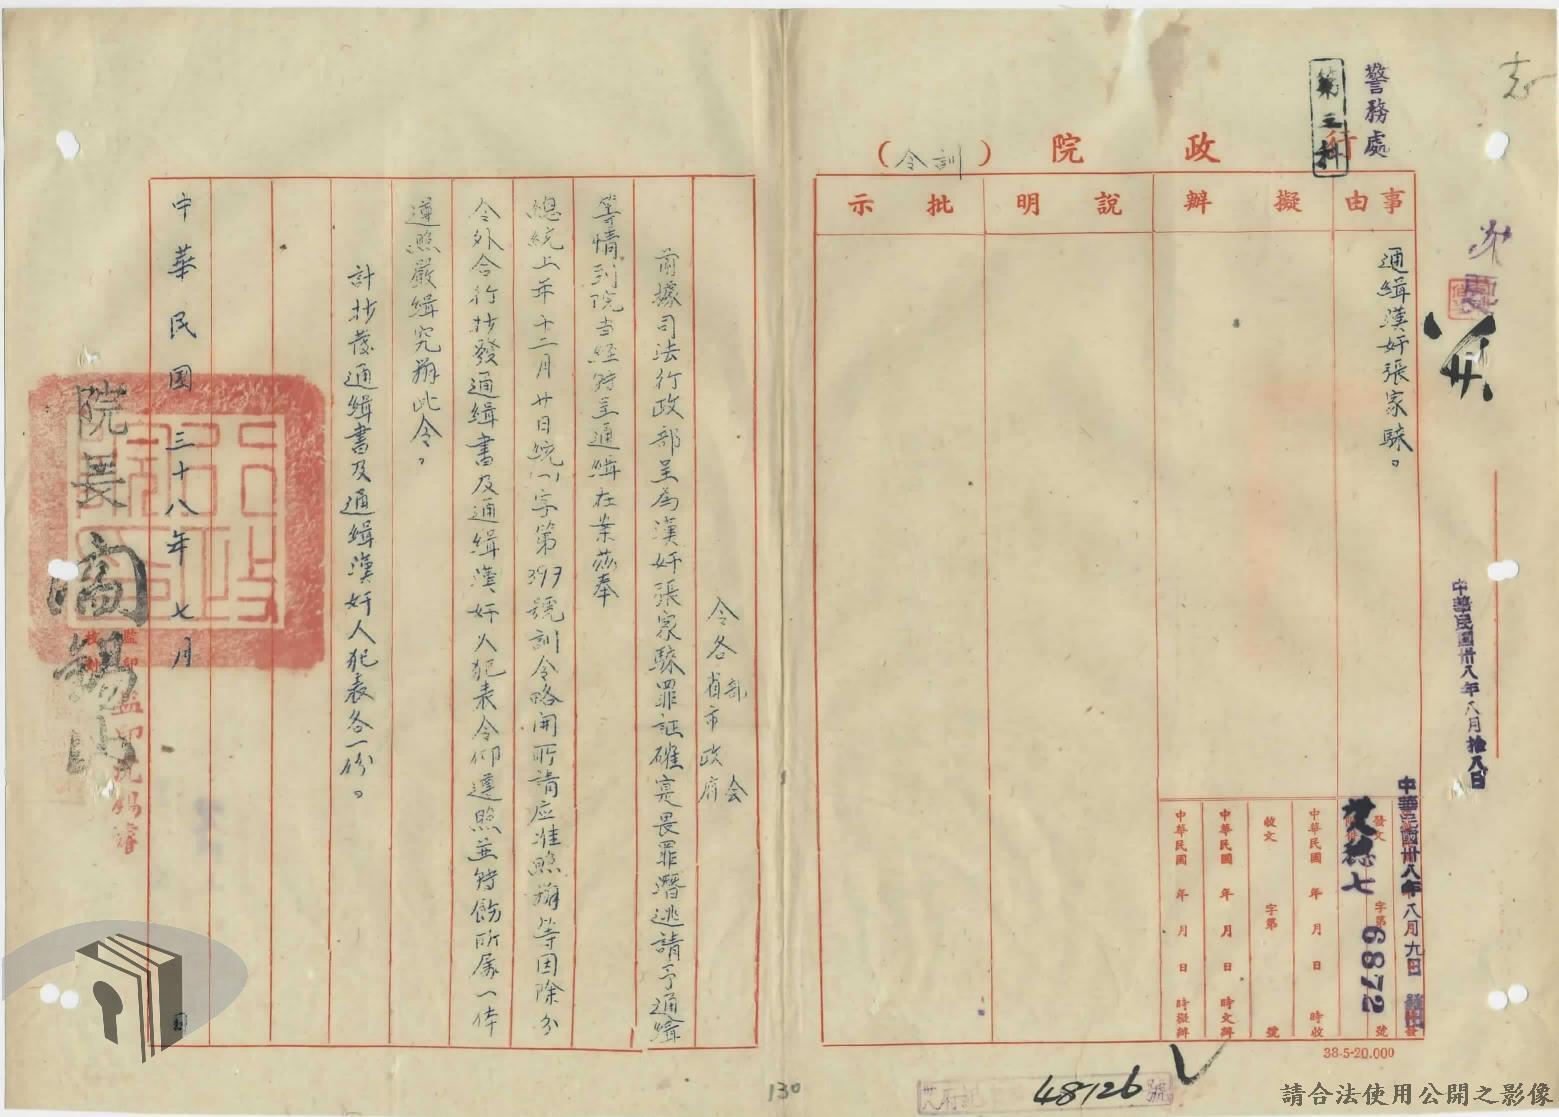 警務處
第三科
行政院（訓令）
事由
擬辦
說明
批示
通緝漢奸張家騋。
中華民國卅八年八月拾八日
中華民國卅八年八月九日
發文
字第
號
七
6872
中華民國 年 月 日 時收
收文 字第 號
中華民國 年 月 日 時文辦
中華民國 年 月 日 時擬辦
38-5-20.000
48126
號
130
令各省市政府
部会
前據司法行政部呈為漢奸張家騋罪証確寔畏罪潛逃請予通緝
等情到院当経轉呈通緝在案茲奉
總統上年十二月廿日統(一)字第397號訓令略開所請应准照辦等因除分
令外合行抄發通緝書及通緝漢奸人犯表令仰遵照並轉飭所屬一体
遵照嚴緝究辦此令。
計抄發通緝書及通緝漢奸人犯表各一份。
中華民国三十八年七月 日
院長閻錫山
監印
校對
請合法使用公開之影像